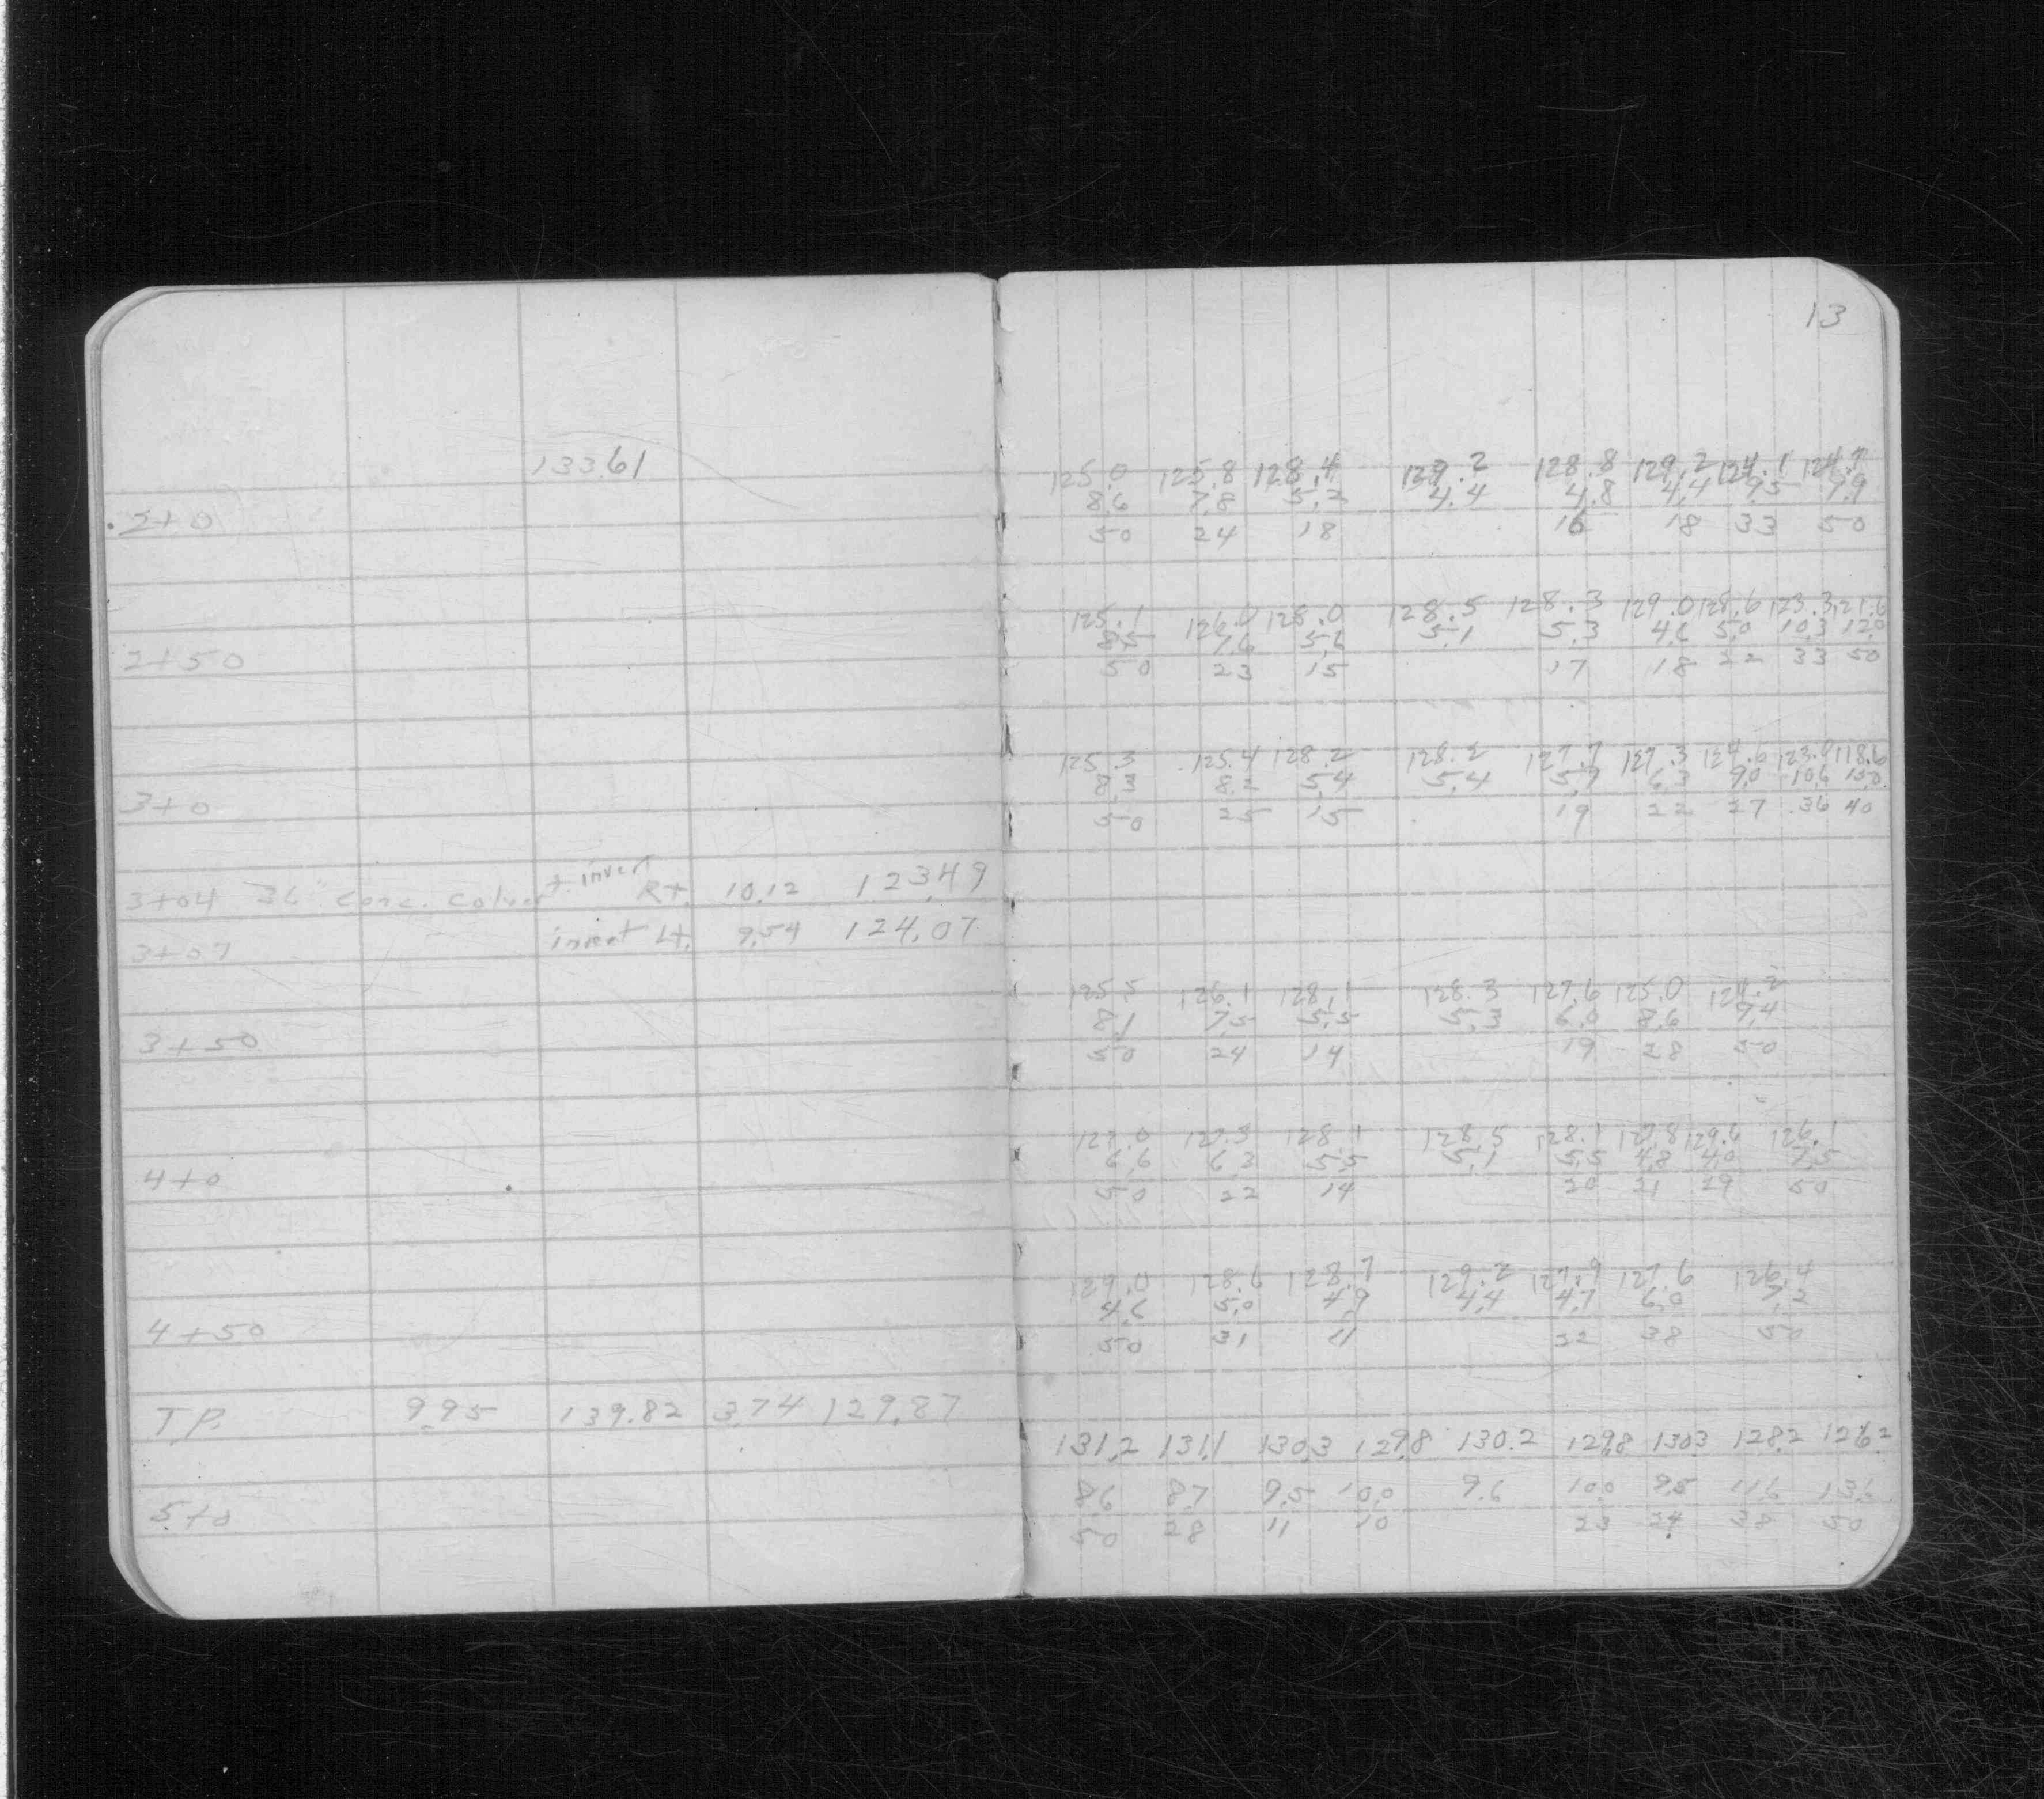 13
133.61
125.0 125.8 128.4 129.2 128.8 129.2 124.1 124.7
8.6 7.8 5.2 4.4 4.8 4.4 9.5 9.9
2+0 50 24 18 16 18 33 50
125.1 126.0 128.0 128.5 128.3 129.0 128.6 123.3 121.6
8.5 7.6 5.6 5.1 5.3 4.6 5.0 10.3 12.0
2+50 50 23 15 17 18 22 33 50
125.3 125.4 128.2 128.2 127.7 127.3 124.6 123.0 118.6
8.3 8.2 5.4 5.4 5.9 6.3 9.0 10.6 15.0
3+0 50 25 15 19 22 27 36 40
3+04 36" Conc. Colvert invert Rt. 10.12 123.49
3+07 invert Lt. 9.54 124.07
125.5 126.1 128.1 128.3 127.6 125.0 124.2
8.1 7.5 5.5 5.3 6.0 8.6 9.4
3+50 50 24 14 19 28 50
127.0 127.3 128.1 128.5 128.1 128.8 129.6 126.1
6.6 6.3 5.5 5.1 5.5 4.8 4.0 7.5
4+0 50 22 14 20 21 29 50
129.0 128.6 128.7 129.2 127.9 127.6 126.4
4.6 5.0 4.9 4.4 4.7 6.0 7.2
4+50 50 31 11 32 38 50
T.P. 9.95 139.82 3.74 129.87
131.2 131.1 130.3 129.8 130.2 129.8 130.3 128.2 126.2
8.6 8.7 9.5 10.0 9.6 10.0 9.5 11.6 13.6
5+0 50 28 11 10 23 24 38 50